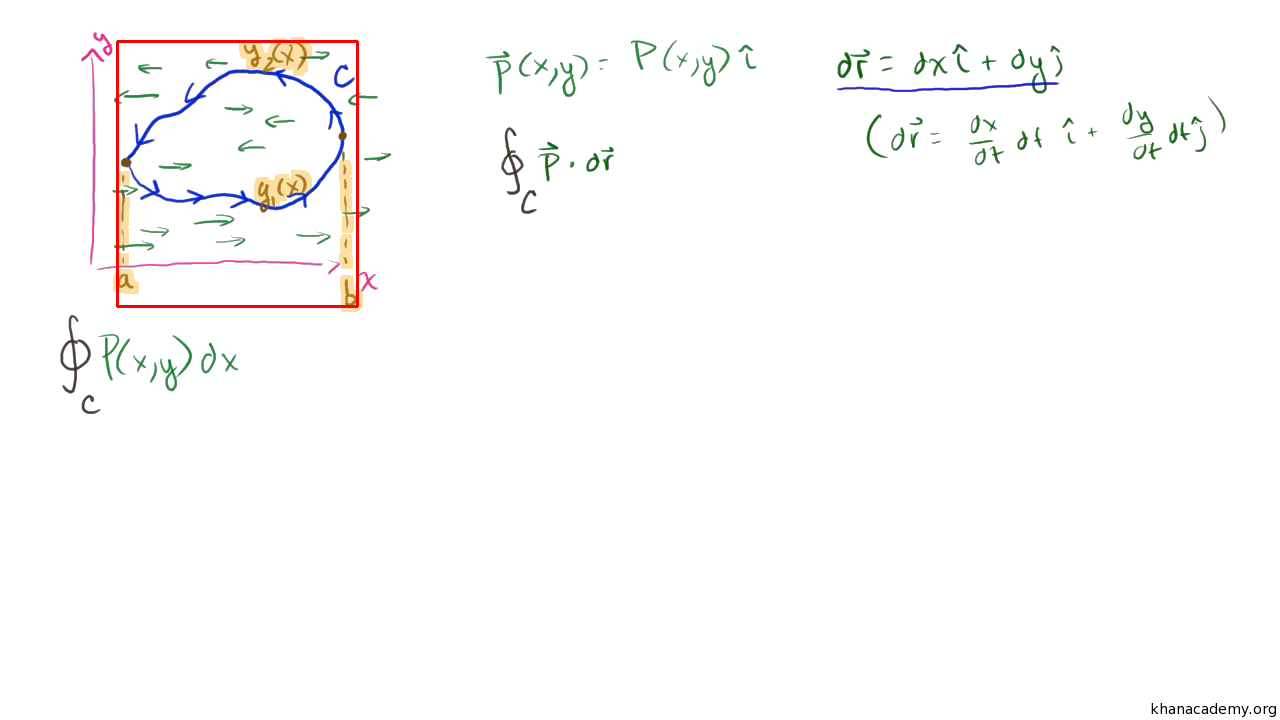 y
y₂(x)
C
y₁(x)
a
b
x
∮_C P(x,y) dx
p⃗(x,y) = P(x,y) î
∮_C p⃗ · dr⃗
dr⃗ = dx î + dy ĵ
(dr⃗ = dx/dt dt î + dy/dt dt ĵ)
khanacademy.org